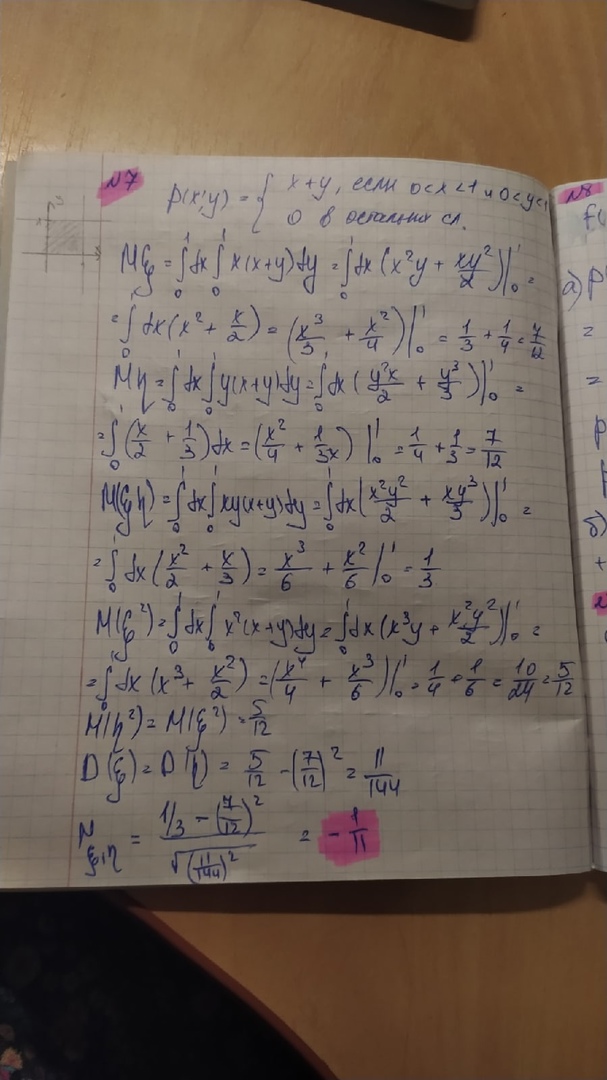 N7
p(x;y) = { x+y, если 0<x<1 и 0<y<1
0 в остальных сл.
Mξ = ∫₀¹ dx ∫₀¹ x(x+y)dy = ∫₀¹ dx (x²y + xy²/2)|₀¹ =
= ∫₀¹ dx(x² + x/2) = (x³/3 + x²/4)|₀¹ = 1/3 + 1/4 = 7/12
Mη = ∫₀¹ dx ∫₀¹ y(x+y)dy = ∫₀¹ dx (y²x/2 + y³/3)|₀¹ =
= ∫₀¹ (x/2 + 1/3) dx = (x²/4 + 1/3x) |₀¹ = 1/4 + 1/3 = 7/12
M(ξη) = ∫₀¹ dx ∫₀¹ xy(x+y)dy = ∫₀¹ dx (x²y²/2 + xy³/3)|₀¹ =
= ∫₀¹ dx (x²/2 + x/3) = x³/6 + x²/6 |₀¹ = 1/3
M(ξ²) = ∫₀¹ dx ∫₀¹ x²(x+y)dy = ∫₀¹ dx (x³y + x²y²/2)|₀¹ =
= ∫₀¹ dx (x³ + x²/2) = (x⁴/4 + x³/6)|₀¹ = 1/4 + 1/6 = 10/24 = 5/12
M(η²) = M(ξ²) = 5/12
D(ξ) = D(η) = 5/12 - (7/12)² = 11/144
ξ,η = (1/3 - (7/12)²) / √((11/144)²) = - 1/11
N8
а) p
=
=
p
б)
+